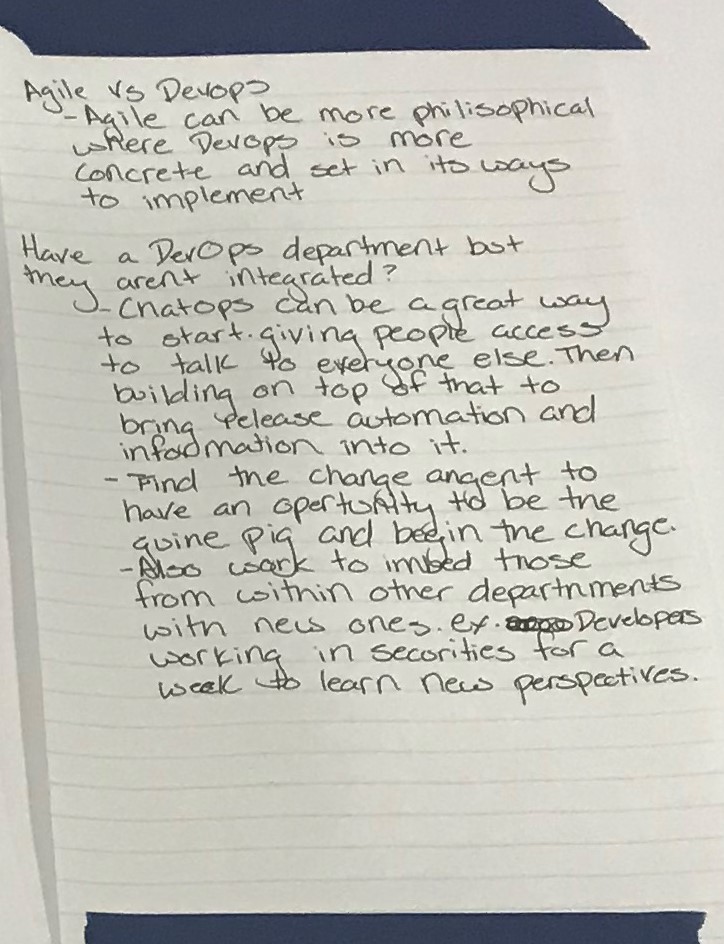 Agile vs Devops
-Agile can be more philisophical
where Devops is more
concrete and set in its ways
to implement
Have a DevOps department but
they arent integrated?
-Chatops can be a great way
to start. giving people access
to talk to everyone else. Then
building on top of that to
bring release automation and
information into it.
-Find the change angent to
have an opertunity to be the
guine pig and begin the change.
-Also work to imbed those
from within other departnments
with new ones. ex. Developers
working in securities for a
week to learn new perspectives.